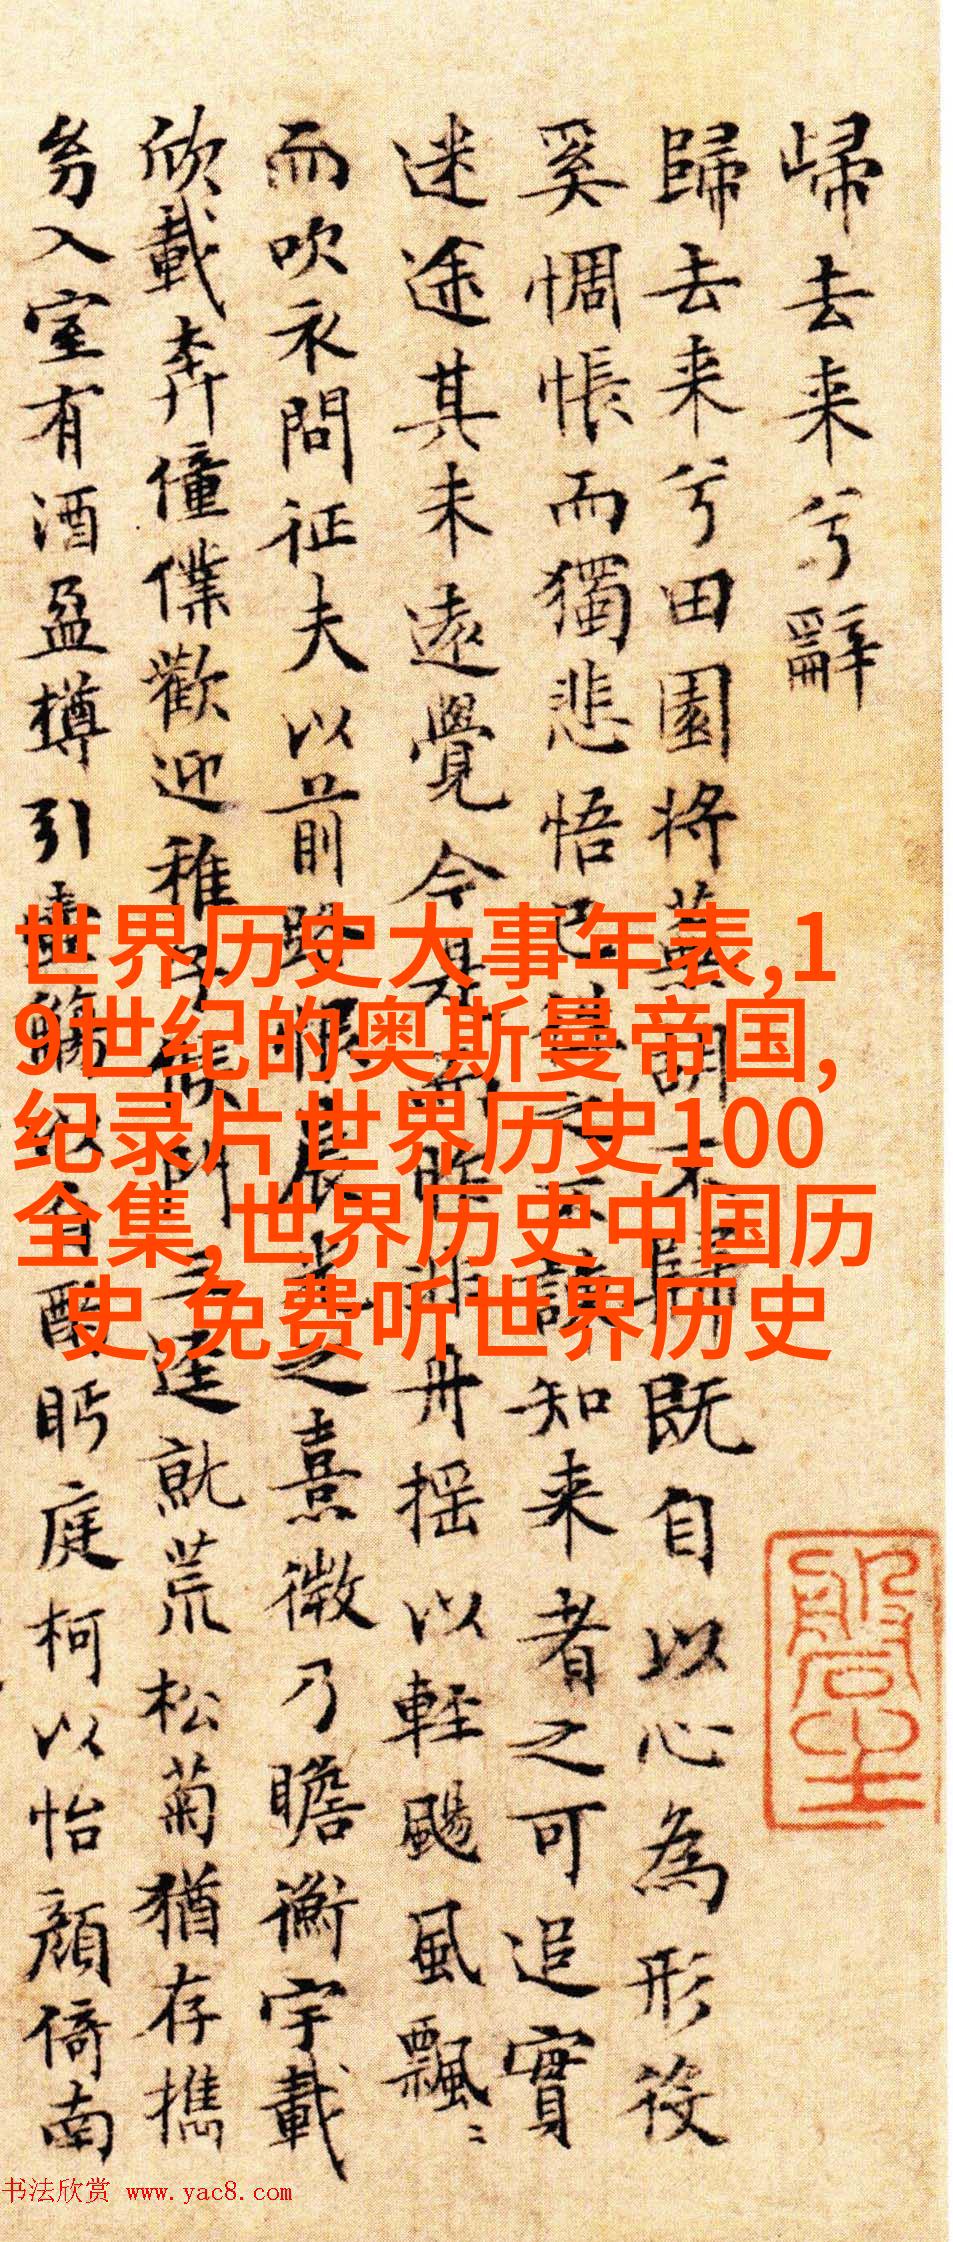 歸去来兮辭
歸去来兮田園將蕪胡不歸既自以心為形役
奚惆悵而獨悲悟已往之不諫知来者之可追實
迷途其未遠覺今是而昨非舟摇以輕颺風飄〻
而吹衣問征夫以前路恨晨光之熹微乃瞻衡宇載
欣載奔僮僕歡迎稚子候門三逕就荒松菊猶存携
幼入室有酒盈樽引壺觴以自酌眄庭柯以怡顔倚南
世界历史大事年表,1
9世纪的奥斯曼帝国,
纪录片世界历史100
全集,世界历史中国历
史,免费听世界历史
书法欣赏 www.yac8.com